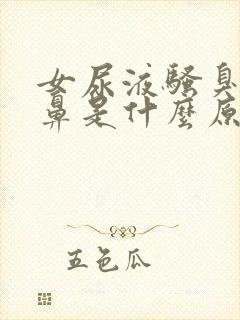 女尿液騷臭
鼻是什麼原
五色瓜